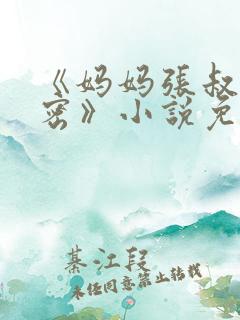 《妈妈張叔
密》小説免
綦江段
未经同意禁止转载